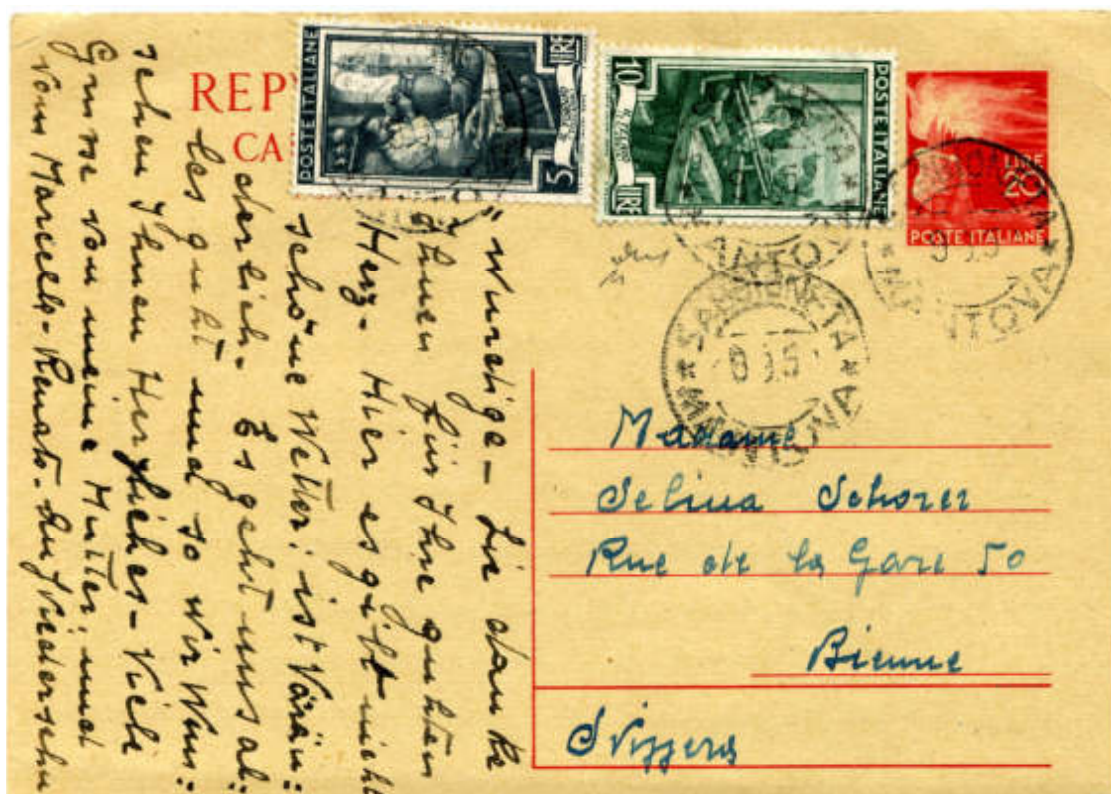 REP
CA
POSTE ITALIANE
5 LIRE
10 LIRE
POSTE ITALIANE
LIRE
20
POSTE ITALIANE
MANTOVA
MANTOVA
Madame
Selina Schorer
Rue de la Gare 50
Bienne
Svizzera
"würdige - Sie danke
Ihnen für Ihre guhten
Herz - Hier es gibt nicht
schöne Wetter: ist Värän:
derlich - Es geht uns al:
les guht und so wir Wün:
schen Ihnen Herzliches - Viele
Grüsse von meine Mutter, und
vom Marcell - Renato. Auf Wiedersehn